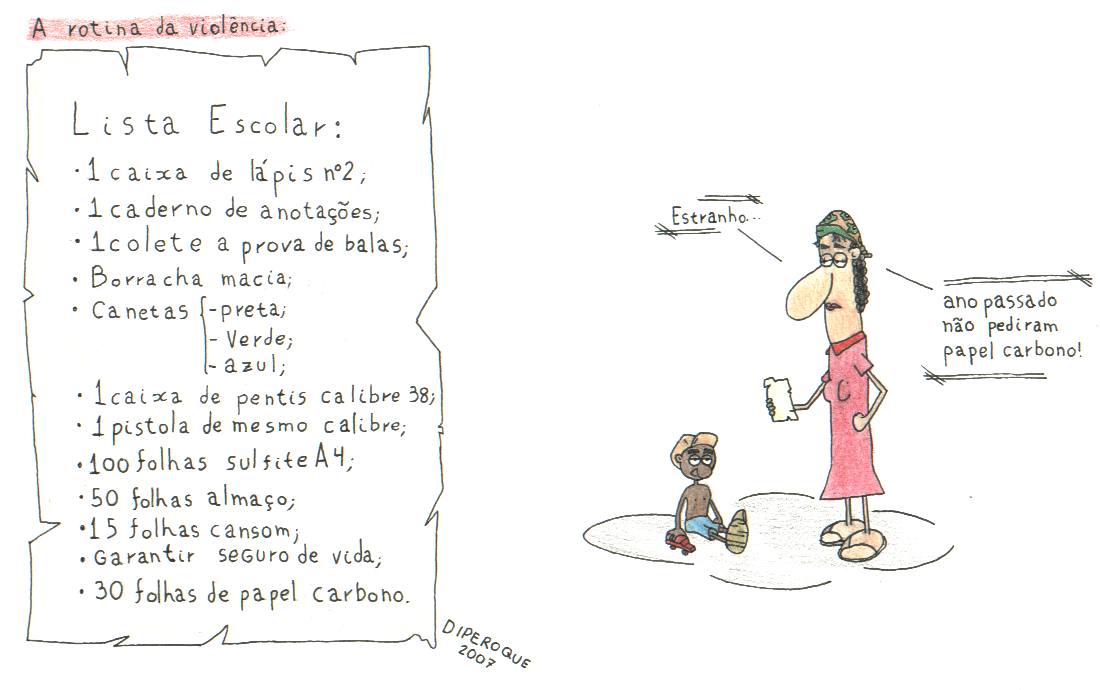 A rotina da violência:
Lista Escolar:
· 1 caixa de lápis nº2;
· 1 caderno de anotações;
· 1 colete a prova de balas;
· Borracha macia;
· Canetas { - preta;
- Verde;
- azul;
· 1 caixa de pentis calibre 38;
· 1 pistola de mesmo calibre;
· 100 folhas sulfite A4;
· 50 folhas almaço;
· 15 folhas cansom;
· Garantir seguro de vida;
· 30 folhas de papel carbono.
DIPEROQUE
2007
Estranho...
ano passado
não pediram
papel carbono!